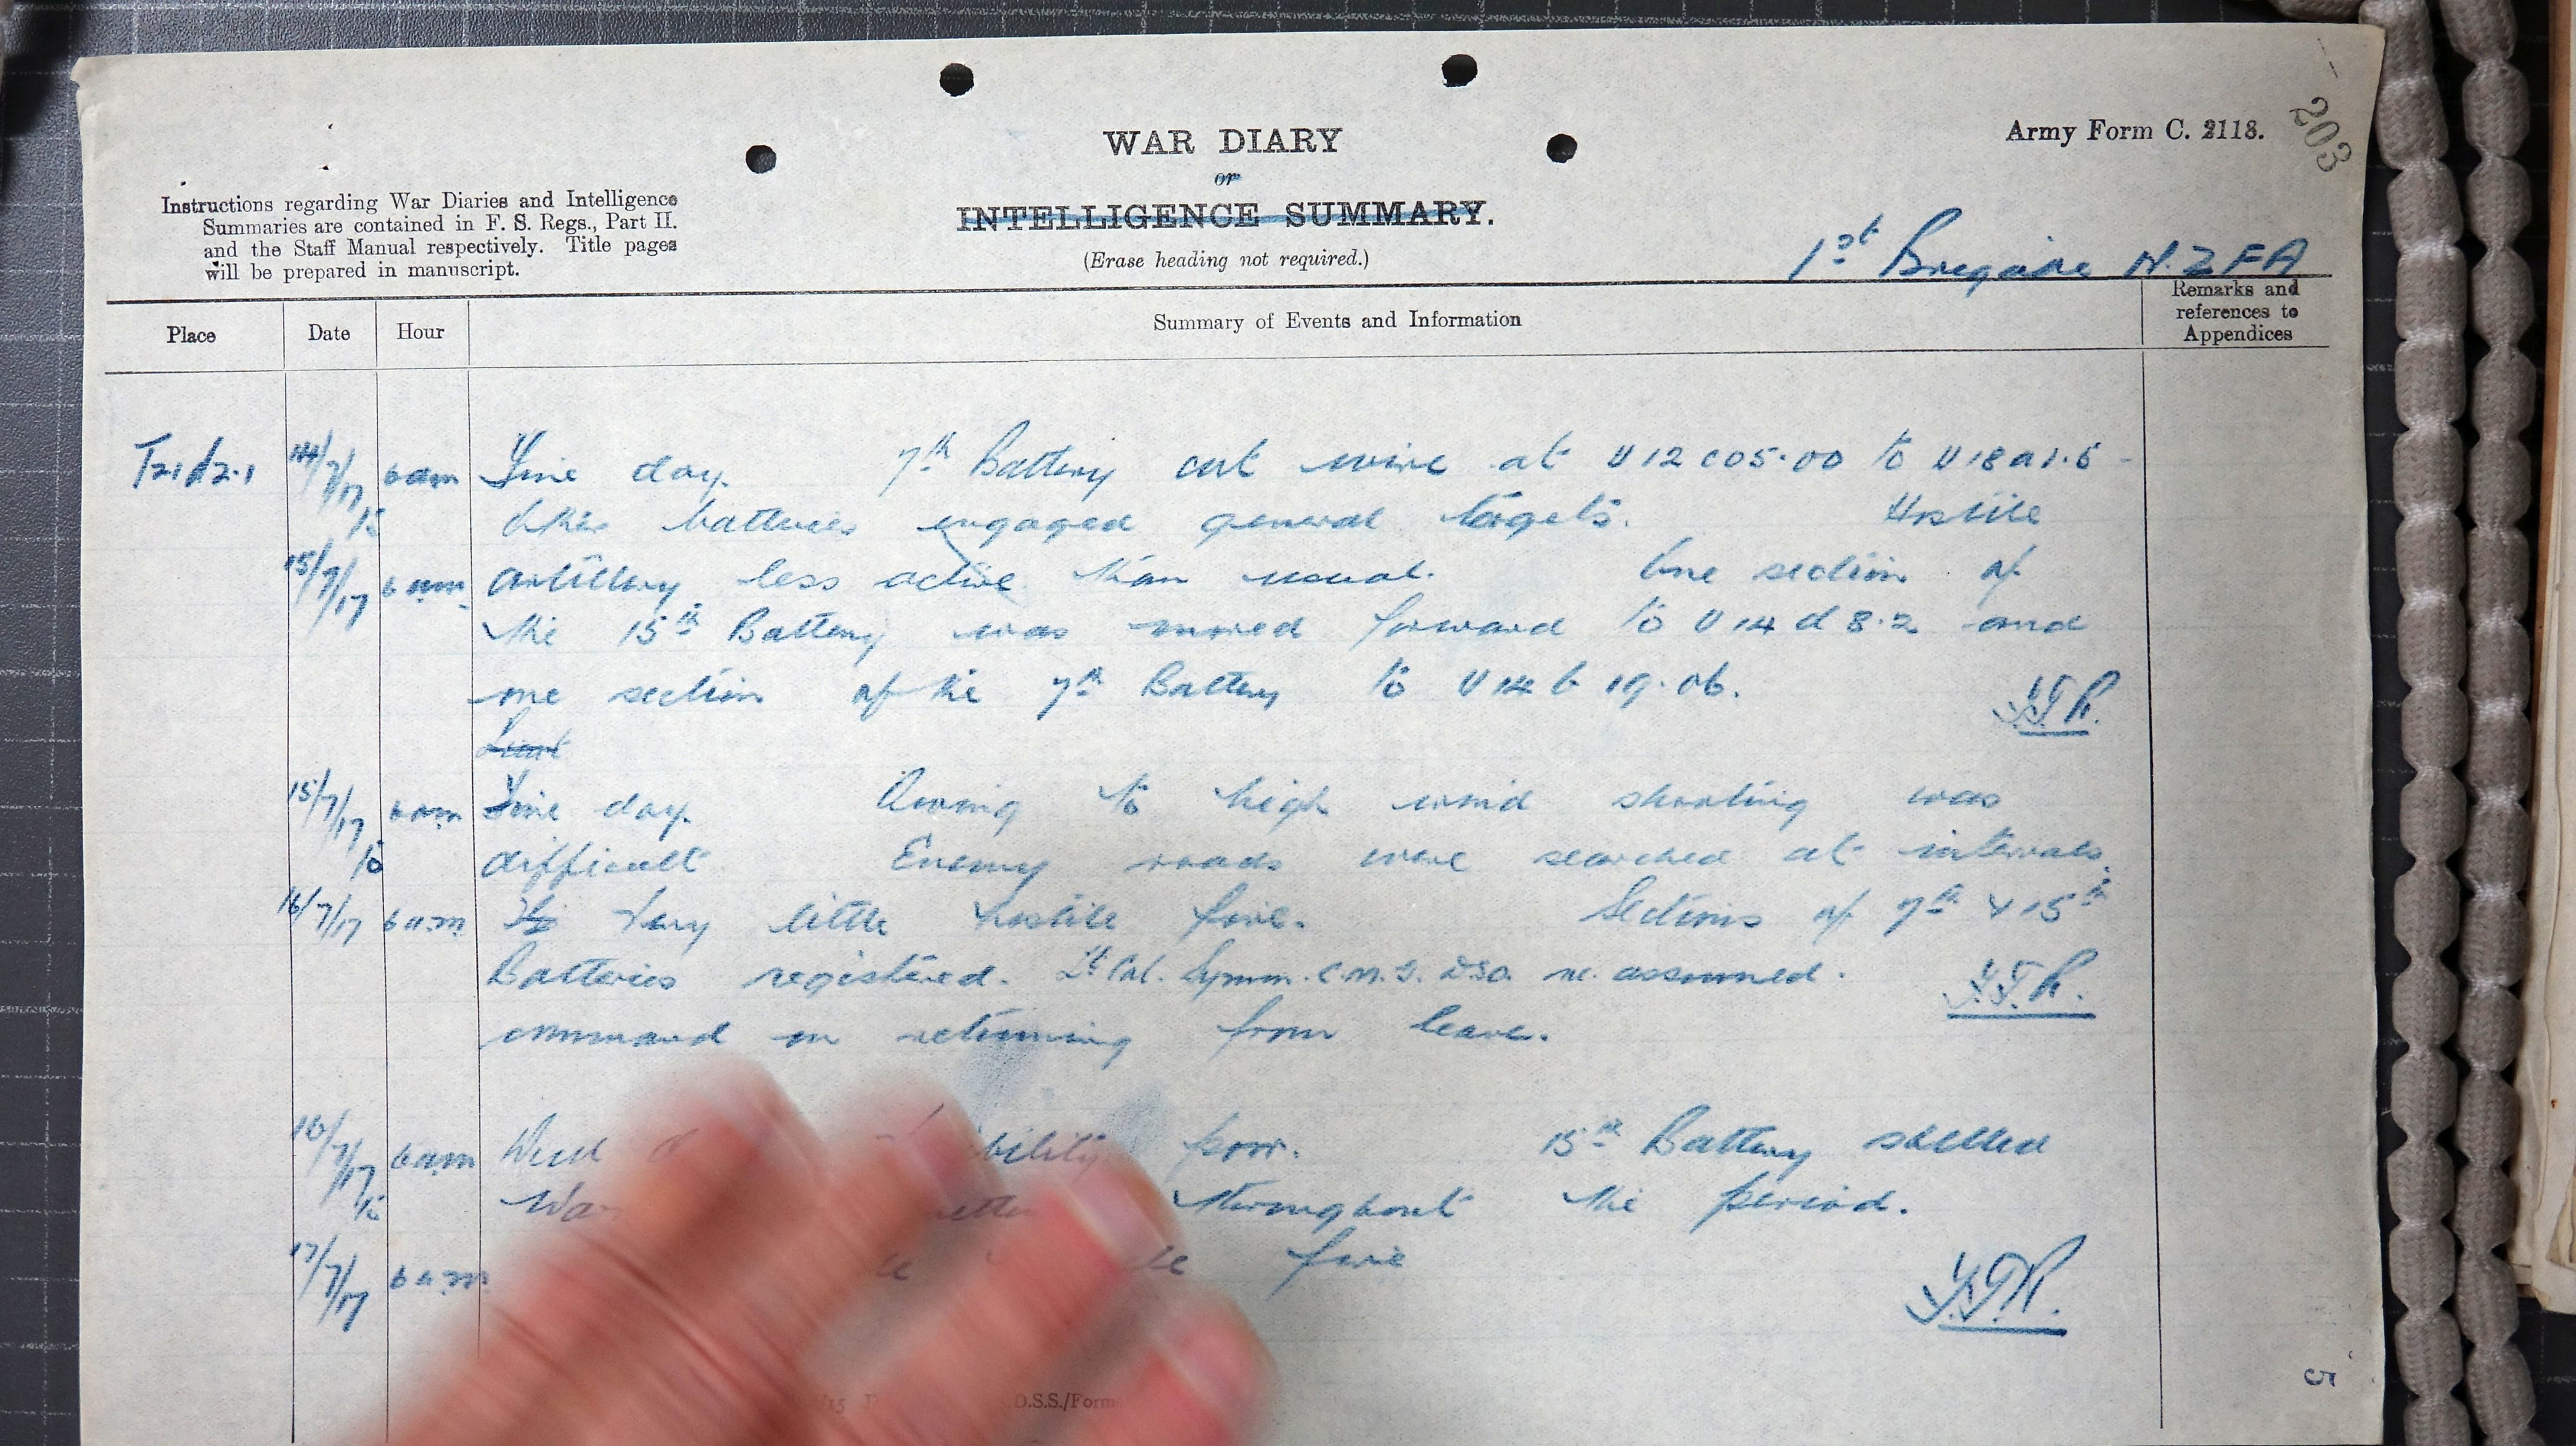 203
Army Form C. 2118.
WAR DIARY
or
INTELLIGENCE SUMMARY.
(Erase heading not required.)
Instructions regarding War Diaries and Intelligence
Summaries are contained in F. S. Regs., Part II.
and the Staff Manual respectively. Title pages
will be prepared in manuscript.
1st Brigade N.Z.F.A
Place Date Hour Summary of Events and Information Remarks and references to Appendices
T21d2.1 14/7/17 6am Fine day. 7th Battery cut wire at U12c05.00 to U18a1.5-
to Other batteries engaged general targets. Hostile
15/7/17 6am artillery less active than usual. One section of
the 15th Battery was moved forward to U14d8.2 and
one section of the 7th Battery to U14b19.06.
15/7/17 6am Fine day. Owing to high wind shooting was
to difficult Enemy roads were searched at intervals.
16/7/17 6am Very little hostile fire. Sections of 7th & 15th
Batteries registered. Lt Col. Symon. C.M.G. DSO. re assumed.
command on returning from leave.
16/7/17 6am poor. 15th Battery shelled
to throughout the period.
17/7/17 6am fire
D.S.S./Form
5